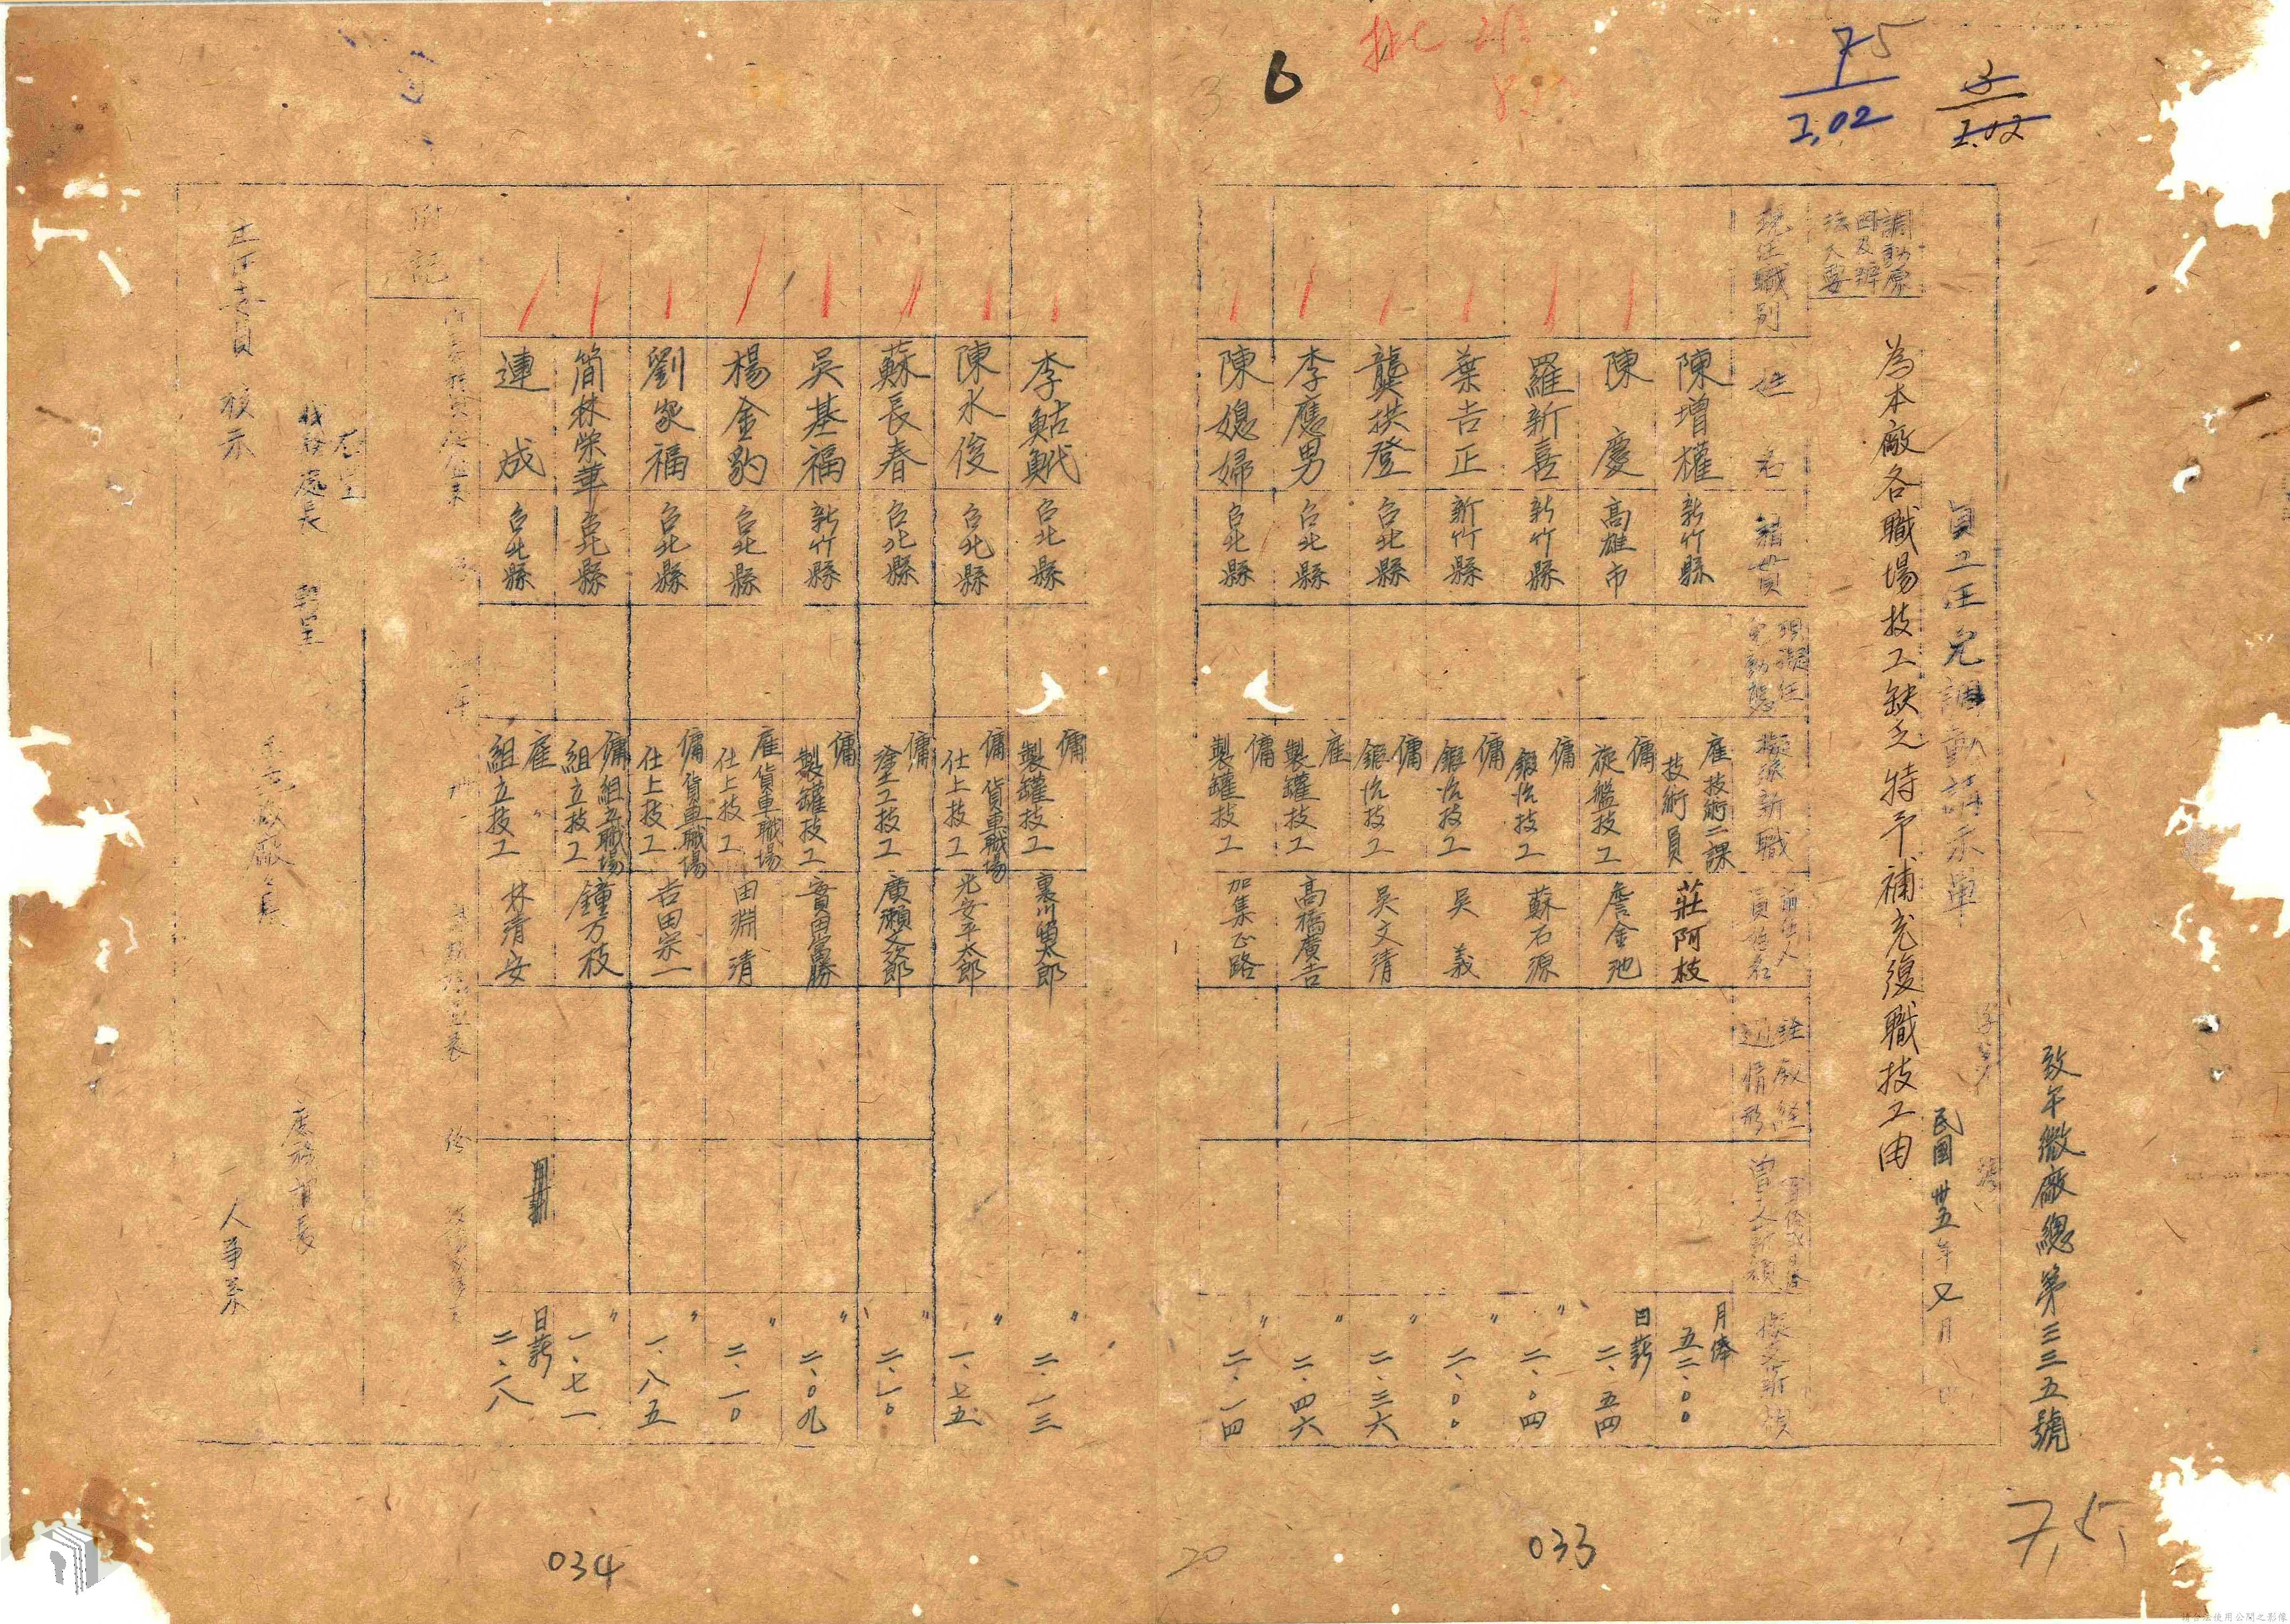 75
7.02
3
7.02
6
3
致午微廠總第三三五號
員工任免調動請示單
字第
號
民國卅五年又月 日
調動原
因及辦
法大要
為本廠各職場技工缺乏特予補充復職技工由
現任職別
姓名
籍貫
現擬任
免動態
擬派新職
前任人
員姓名
銓敘經
過情形
擬支薪額
陳增權 新竹縣 雇技術二課技術員 莊阿枝 月俸 五二·〇〇
陳慶 高雄市 傭旋盤技工 詹金池 日薪 二、五四
羅新喜 新竹縣 傭鍛冶技工 蘇石源 〃 二、〇四
葉吉正 新竹縣 傭鍛冶技工 吳義 〃 二、〇〇
龔拱登 台北縣 傭鍛冶技工 吳文清 〃 二、三六
李應男 台北縣 雇製罐技工 高橋廣吉 二、四六
陳媳婦 台北縣 傭製罐技工 加集正路 〃 二、一四
李鮎鮘 台北縣 傭製罐技工 裏川留太郎 〃 二、一三
陳水俊 台北縣 傭貨車職場仕上技工 光安平太郎 〃 一、七五
蘇長春 台北縣 傭塗工技工 廣瀬文次郎 〃 二、一〇
吳基福 新竹縣 傭製罐技工 實田當勝 〃 二、〇九
楊金豹 台北縣 雇貨車職場仕上技工 田淵清 〃 二、一〇
劉家福 台北縣 傭貨車職場仕上技工 吉田宗一 一、八五
簡林榮華 台北縣 傭組立職場組立技工 鐘万枝 〃 一、七一
連成 台北縣 雇〃組立技工 林清安 日薪 二、六八
附記
處長 轉呈
主任委員 核示
廠長
庶務課長
人事系
033
034
20
7,5,